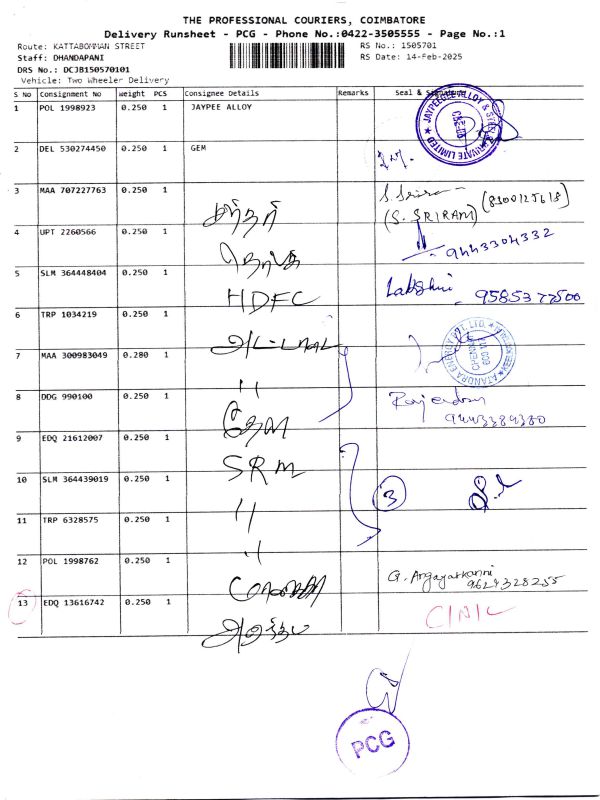 THE PROFESSIONAL COURIERS, COIMBATORE
Delivery Runsheet - PCG - Phone No.:0422-3505555 - Page No.:1
Route: KATTABOMMAN STREET
RS No.: 1505701
Staff: DHANDAPANI
RS Date: 14-Feb-2025
DRS No.: DCJB150570101
Vehicle: Two Wheeler Delivery
S No Consignment No Weight PCS Consignee Details Remarks Seal & Signature
1 POL 1998923 0.250 1 JAYPEE ALLOY
2 DEL 530274450 0.250 1 GEM
3 MAA 707227763 0.250 1
(S. SRIRAM)
4 UPT 2260566 0.250 1 9443304332
5 SLM 364448404 0.250 1 HDFC 9585377500
6 TRP 1034219 0.250 1
7 MAA 300983049 0.280 1 "
8 DDG 990100 0.250 1 Rajendran
9443384380
9 EDQ 21612007 0.250 1 SRM
10 SLM 364439019 0.250 1 " 3
11 TRP 6328575 0.250 1 "
12 POL 1998762 0.250 1
9629328255
13 EDQ 13616742 0.250 1 C/N/C
PCG